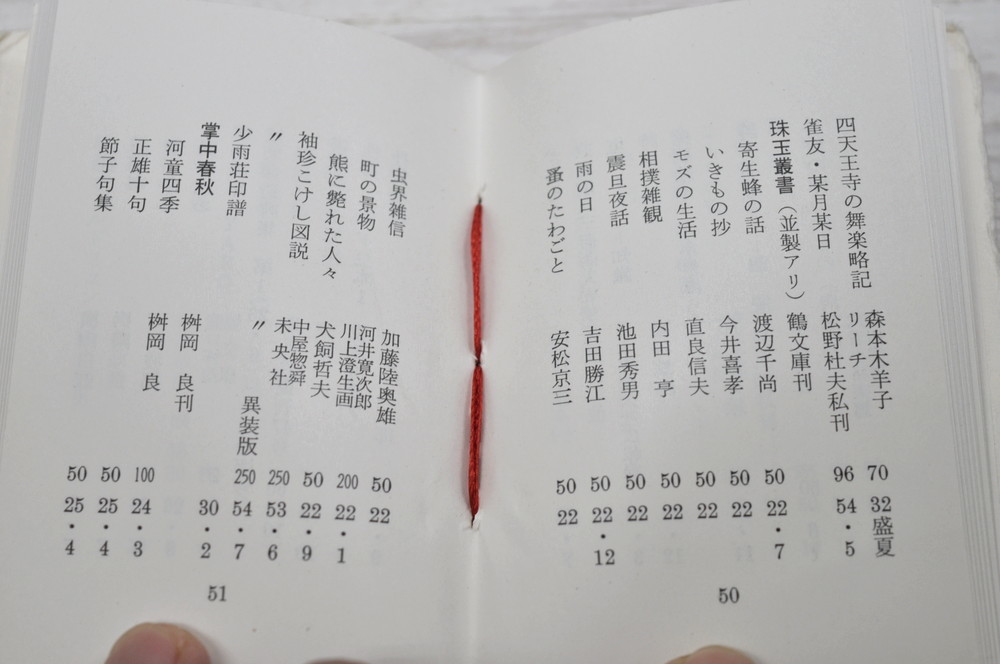 四天王寺の舞楽略記 森本木羊子 70 32盛夏
雀友・某月某日 リーチ 松野杜夫私刊 96 54・5
珠玉叢書（並製アリ） 鶴文庫刊
寄生蜂の話 渡辺千尚 50 22・7
いきもの抄 今井喜孝 50 22
モズの生活 直良信夫 50 22
相撲雑観 内田 亨 50 22
震旦夜話 池田秀男 50 22
雨の日 吉田勝江 50 22・12
蚤のたわごと 安松京三 50 22
50
虫界雑信 加藤陸奥雄 50 22
町の景物 河井寛次郎 川上澄生画 200 22・1
熊に斃れた人々 犬飼哲夫 50 22・9
袖珍こけし図説 中屋惣舜 未央社 250 53・6
〃 〃 異装版 250 54・7
少雨荘印譜 30・2
掌中春秋 桝岡 良刊
河童四季 桝岡 良 100 24・3
正雄十句 50 25・4
節子句集 50 25・4
51